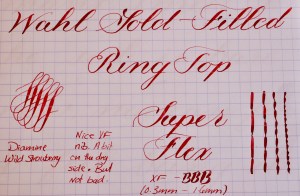 Wahl Gold-Filled
Ring Top
Super
Flex
XF - BBB
(0.3mm - 1.6mm)
Nice XF
nib. A bit
on the dry
side. But
not bad.
Diamine
Wild Strawberry